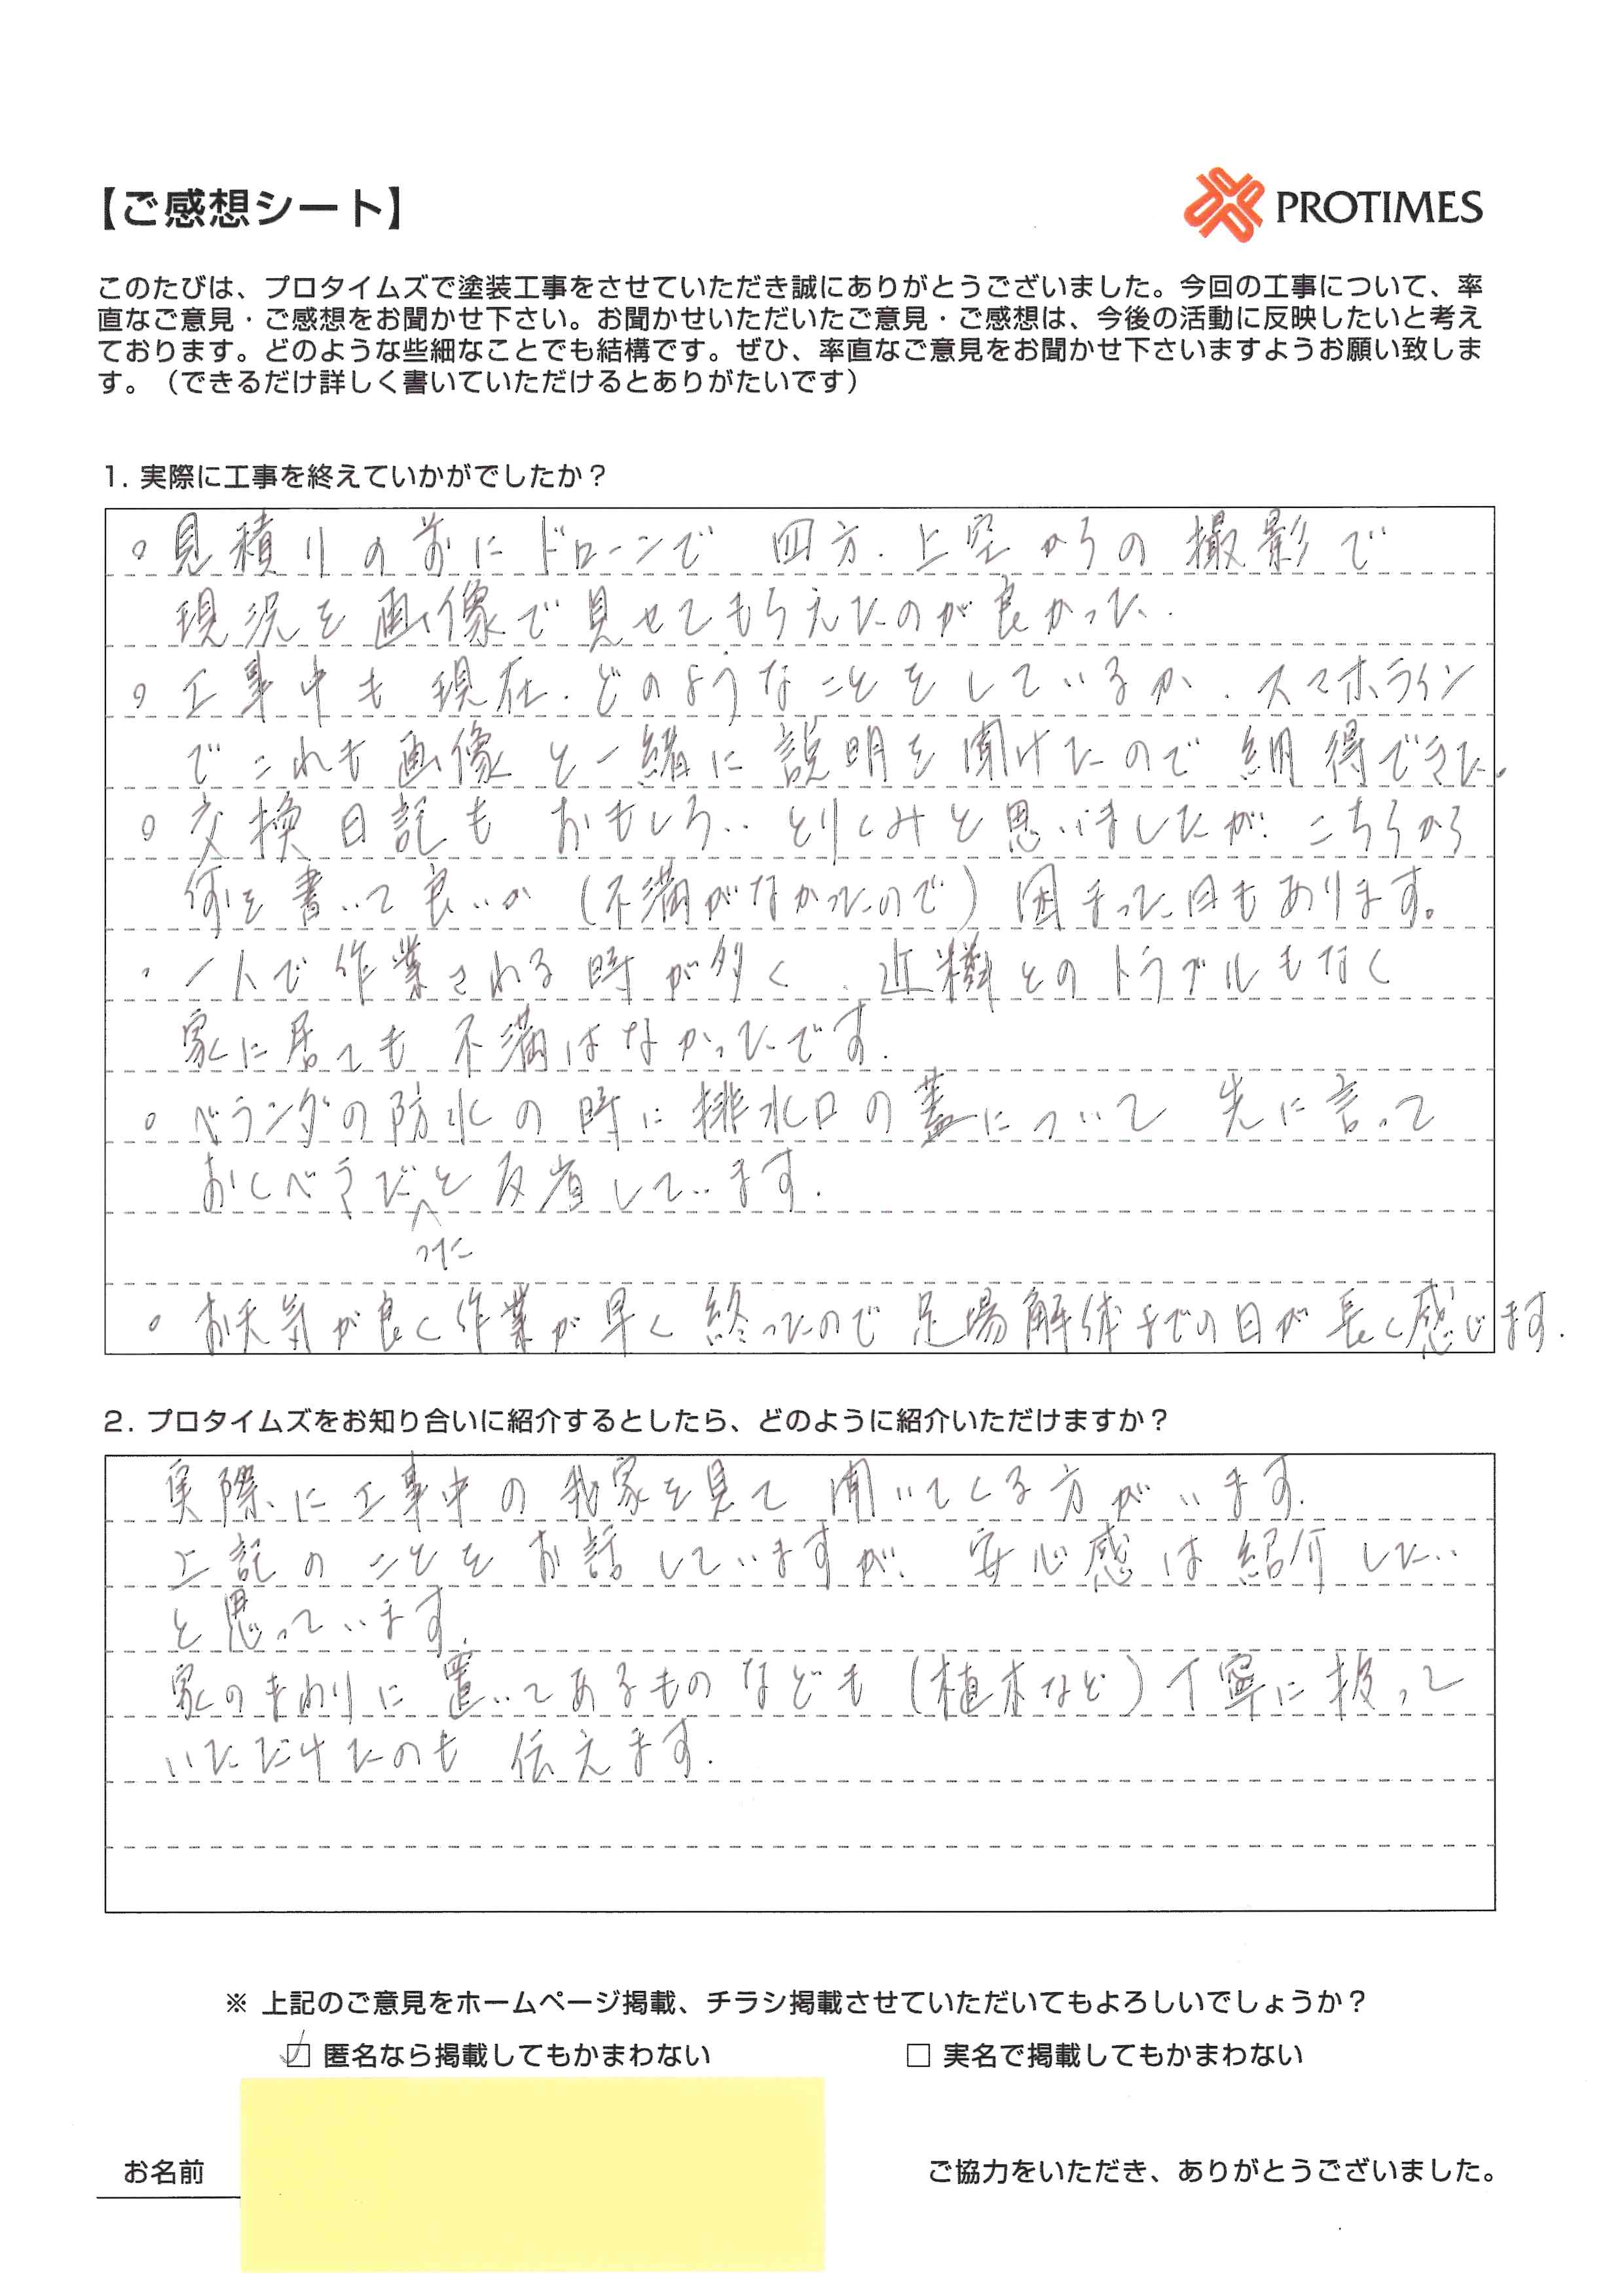 【ご感想シート】
PROTIMES
このたびは、プロタイムズで塗装工事をさせていただき誠にありがとうございました。今回の工事について、率
直なご意見・ご感想をお聞かせ下さい。お聞かせいただいたご意見・ご感想は、今後の活動に反映したいと考え
ております。どのような些細なことでも結構です。ぜひ、率直なご意見をお聞かせ下さいますようお願い致しま
す。（できるだけ詳しく書いていただけるとありがたいです）
1. 実際に工事を終えていかがでしたか？
○見積りの前にドローンで 四方、上空からの撮影で
現況を画像で見せてもらえたのが良かった。
○工事中も現在、どのようなことをしているか、スマホライン
でこれも画像と一緒に説明を聞けたので納得できた。
○交換日記もおもしろいとりくみと思いましたが、こちらから
何を書いて良いか（不満がなかったので）困った日もあります。
・一人で作業される時が多く、近隣とのトラブルもなく
家に居ても不満はなかったです。
○ベランダの防水の時に排水口の蓋について 先に言って
おくべきだったと反省しています。
○お天気が良く作業が早く終ったので足場解体までの日が長く感じます。
2. プロタイムズをお知り合いに紹介するとしたら、どのように紹介いただけますか？
実際に工事中の我家を見て聞いてくる方がいます。
上記のことをお話していますが、安心感は紹介したい
と思っています。
家のまわりに置いてあるものなども（植木など）丁寧に扱って
いただけたのも伝えます。
※ 上記のご意見をホームページ掲載、チラシ掲載させていただいてもよろしいでしょうか？
☑ 匿名なら掲載してもかまわない □ 実名で掲載してもかまわない
お名前
ご協力をいただき、ありがとうございました。